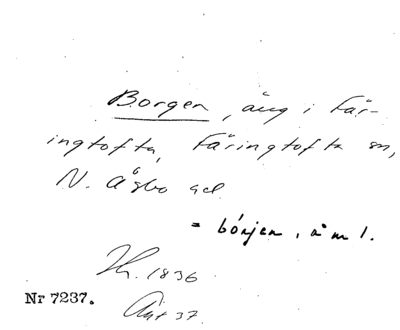 Borgen, äng i Får-
ingtofta, Fåringtofta sn,
N. Åsbo hd
= bórjen, åm l.
1836
Nr 7237.
37